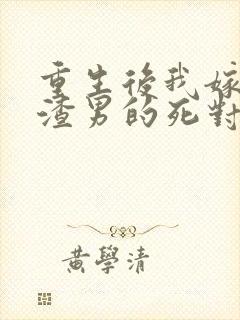 重生後我嫁
渣男的死對
黃學清